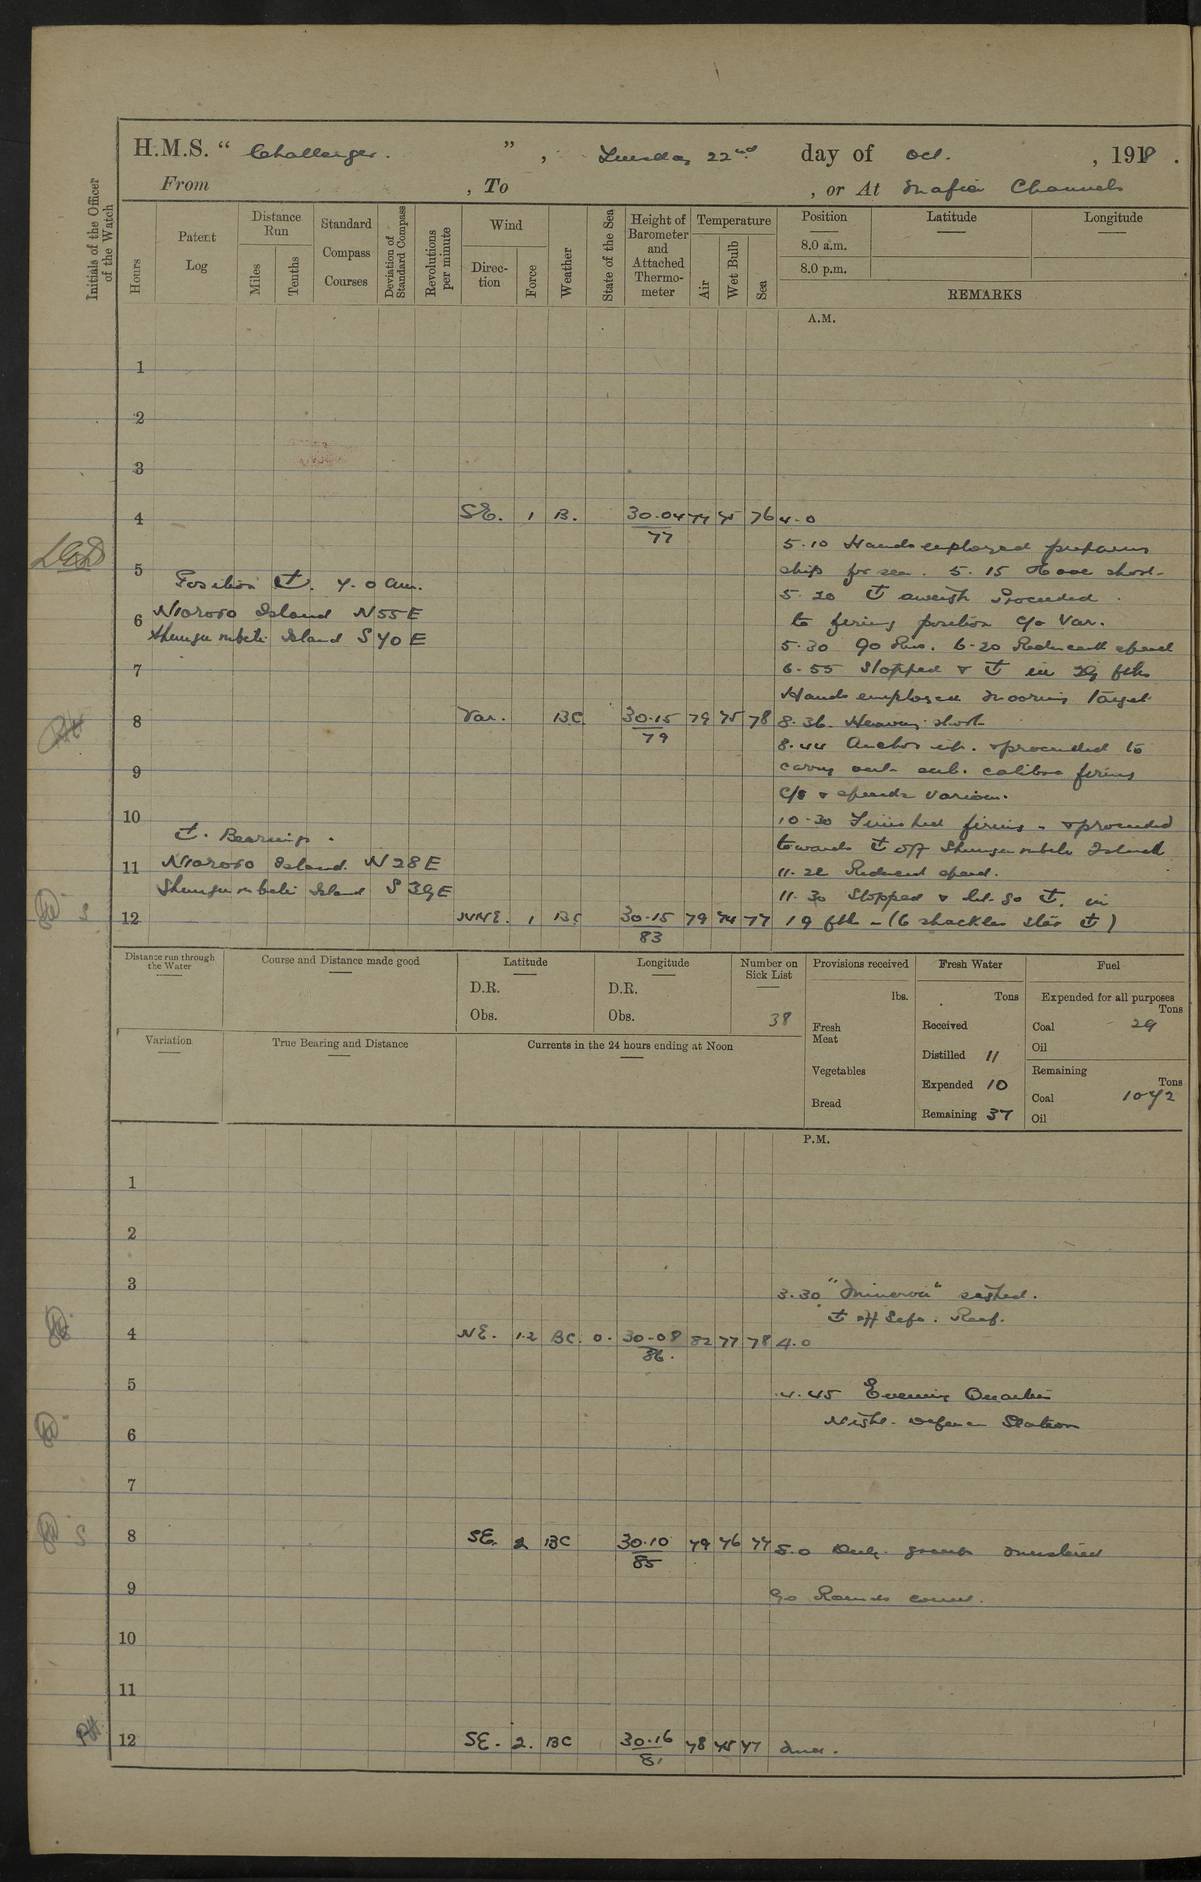 H.M.S. " Challenger. ", Tuesday 22nd day of Oct. , 1918 .
From , To , or At Mafia Channels
Initials of the Officer of the Watch
Hours
Patent Log
Distance Run
Miles
Tenths
Standard Compass Courses
Deviation of Standard Compass
Revolutions per minute
Wind
Direction
Force
Weather
State of the Sea
Height of Barometer and Attached Thermometer
Temperature
Air
Wet Bulb
Sea
Position
Latitude
Longitude
8.0 a.m.
8.0 p.m.
REMARKS
A.M.
1
2
3
4 SE. 1 B. 30.04 77 75 76 4.0
77
5.10 Hands employed preparing
5 ship for sea. 5.15 Hove short.
Position ⚓. 4.0 am.
5.20 ⚓ aweigh Proceeded
Nioroso Island N55E
6 to firing position c/o Var.
Shungu mbeli Island S 40 E
5.30 90 Revs. 6.20 Reduced speed
7 6.55 Stopped & ⚓ in 29 fths
Hands employed mooring Target
8 Var. BC 30.15 79 75 78 8.36. Heaving short
79
8.44 Anchor up. & proceeded to
9 carry out sub. calibre firing
C/s & speeds various.
10 10.30 Finished firing - & proceeded
⚓. Bearings.
towards ⚓ off Shungu mbeli Island
11 Nioroso Island. N 28 E
11.22 Reduced speed.
Shungu mbeli Island S 39 E
11.30 Stopped & let go ⚓. in
12 NNE. 1 BC 30.15 79 74 77 19 fths - (6 shackles star ⚓)
83
Distance run through the Water
Course and Distance made good
Latitude
D.R.
Obs.
Longitude
D.R.
Obs.
Number on Sick List
38
Provisions received
lbs.
Fresh Meat
Vegetables
Bread
Fresh Water
Tons
Received
Distilled 11
Expended 10
Remaining 37
Fuel
Expended for all purposes
Tons
Coal 29
Oil
Remaining
Tons
Coal 1072
Oil
Variation
True Bearing and Distance
Currents in the 24 hours ending at Noon
P.M.
1
2
3
3.30 "Minerva" sighted.
⚓ off Sefo. Reef.
4 NE. 1.2 BC. 0. 30.08 82 77 78 4.0
86.
5 4.45 Evening Quarters
Night Defence Station
6
7
8 SE. 2 BC 30.10 79 76 77 8.0 Duty. guns mustered
85
9 9.0 Rounds correct.
10
11
12 SE. 2. BC 30.16 78 75 77
81